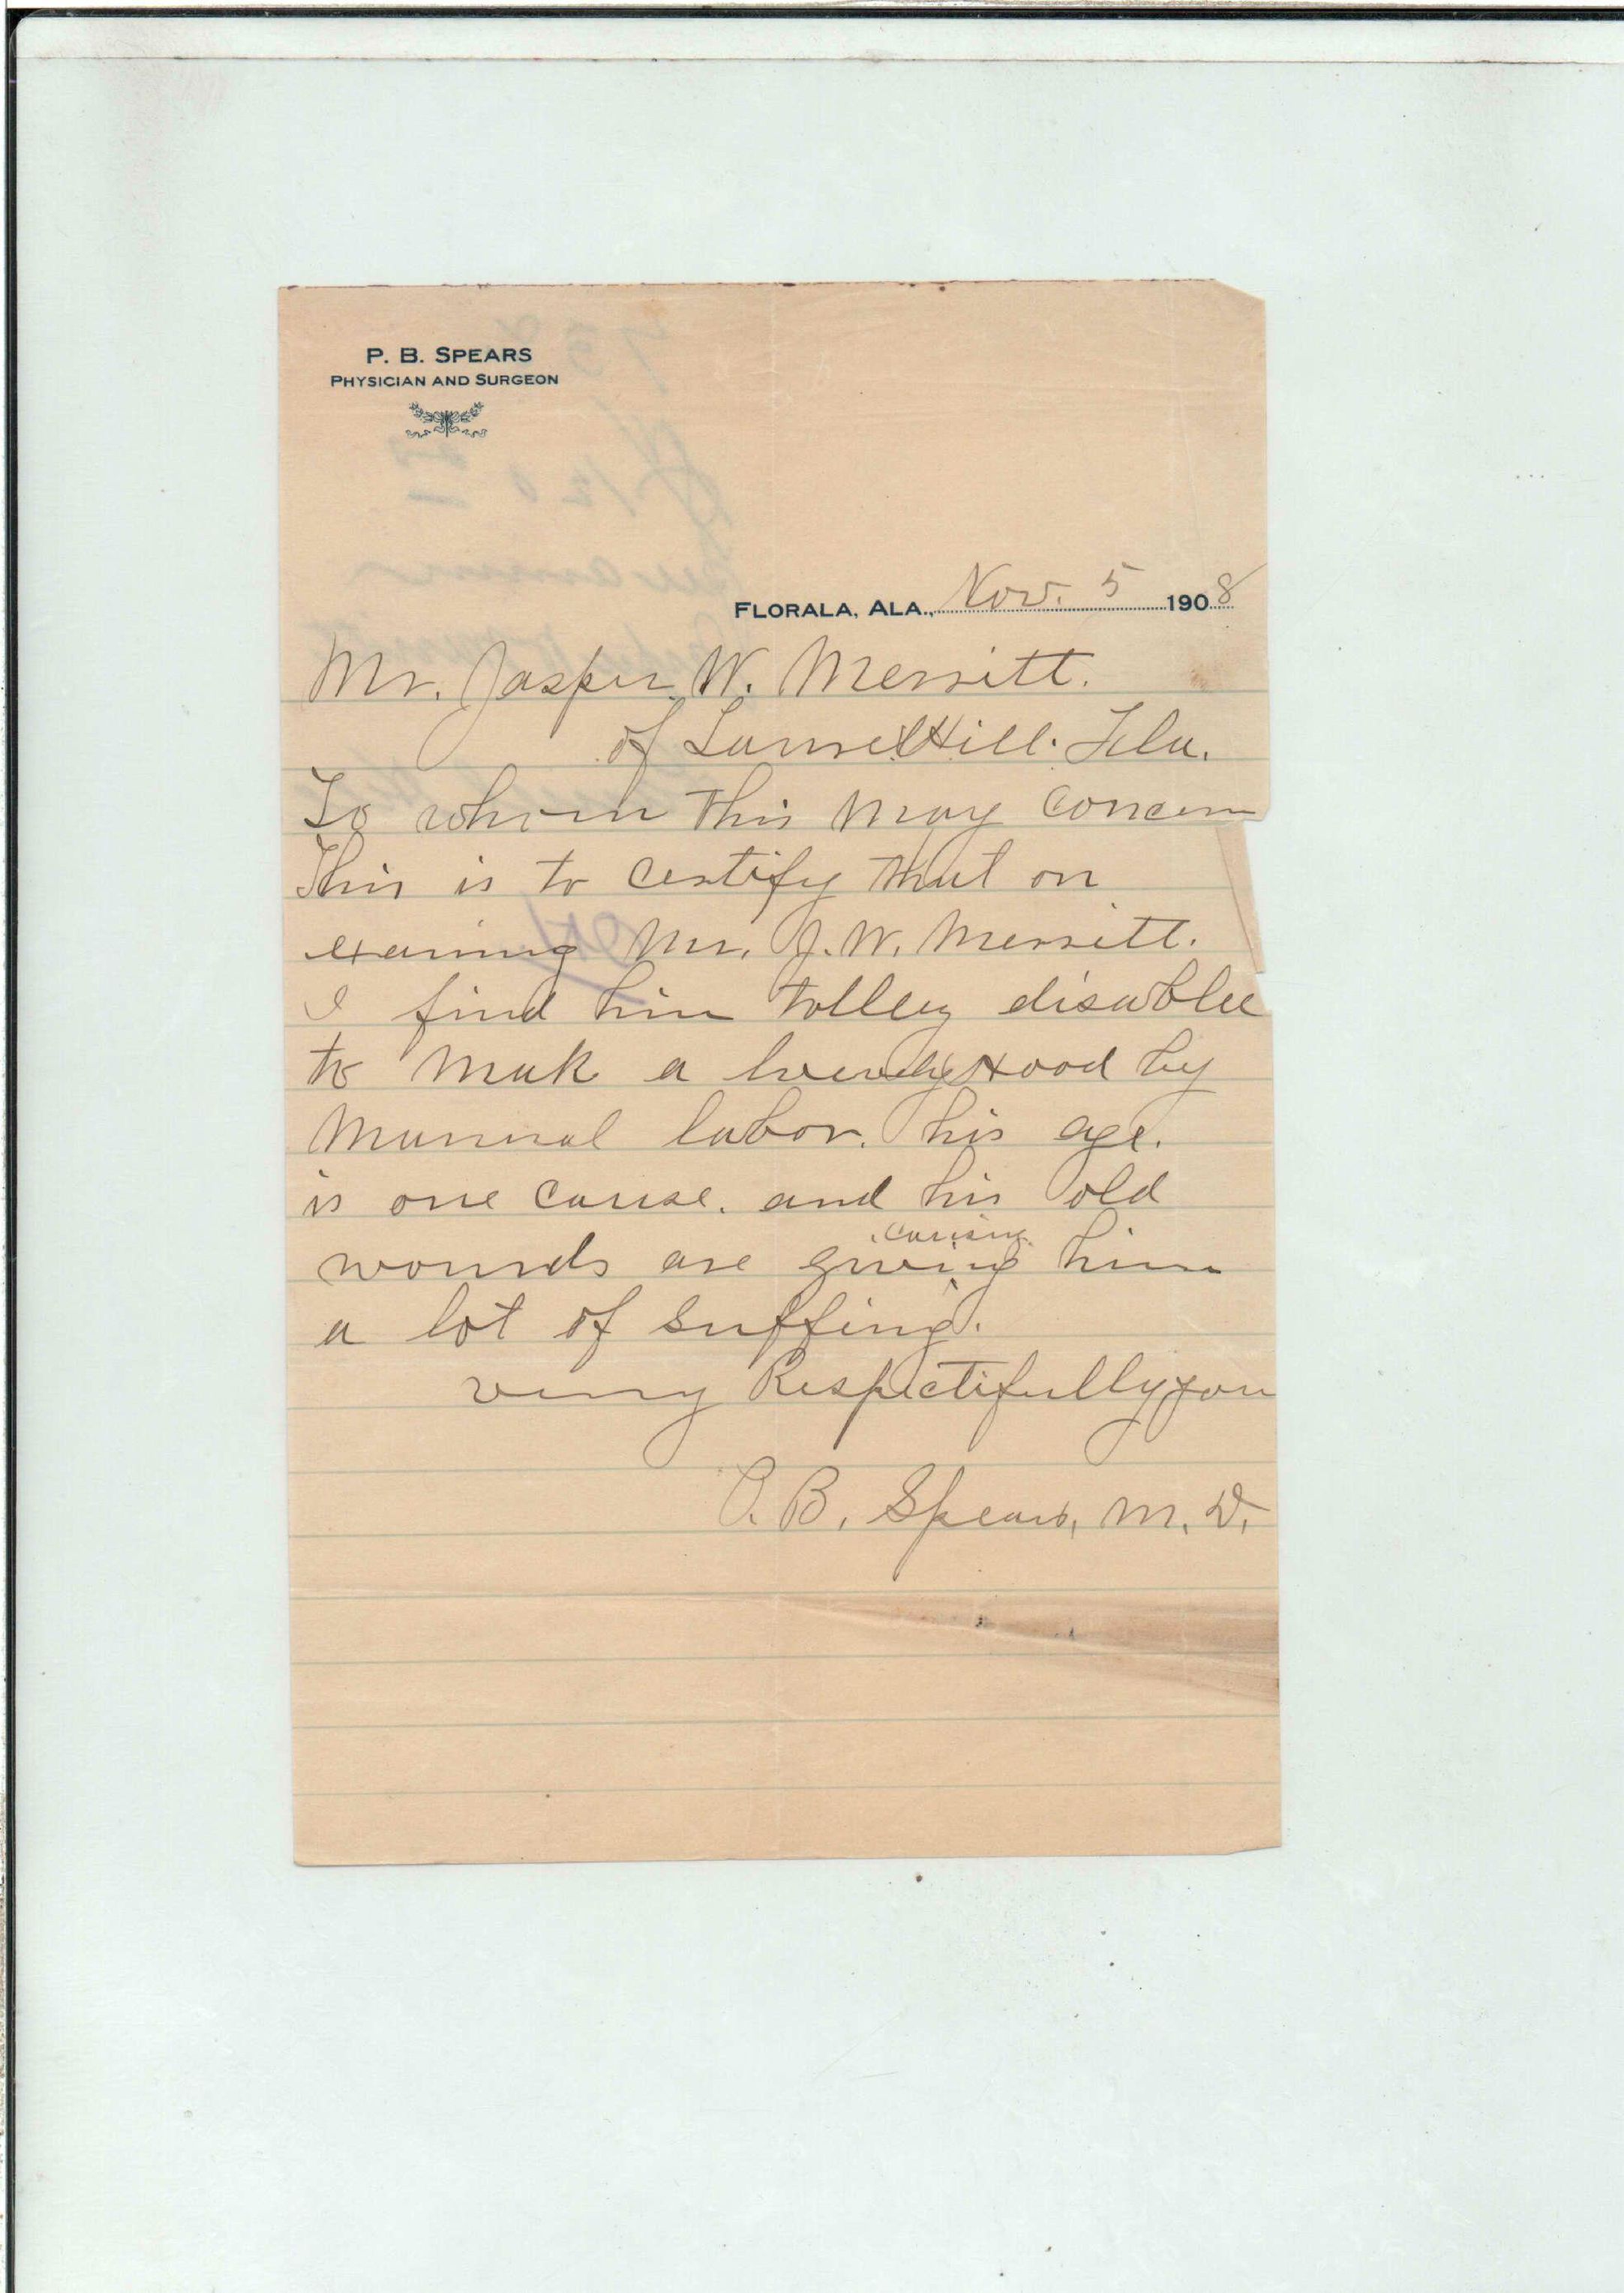 P. B. SPEARS
PHYSICIAN AND SURGEON
FLORALA, ALA., Nov. 5 1908
Mr. Jasper W. Merritt.
of Laurel Hill. Fla.
To whom This May Concern
This is to Certify that on
examing Mr. J. W. Merritt.
I find him tolley disable
to Mak a hood by
Manual labor. his age.
is one Cause. and his old
causing
wounds are giving him
a lot of suffing.
very Respectifully you
P. B. Spears, M. D.